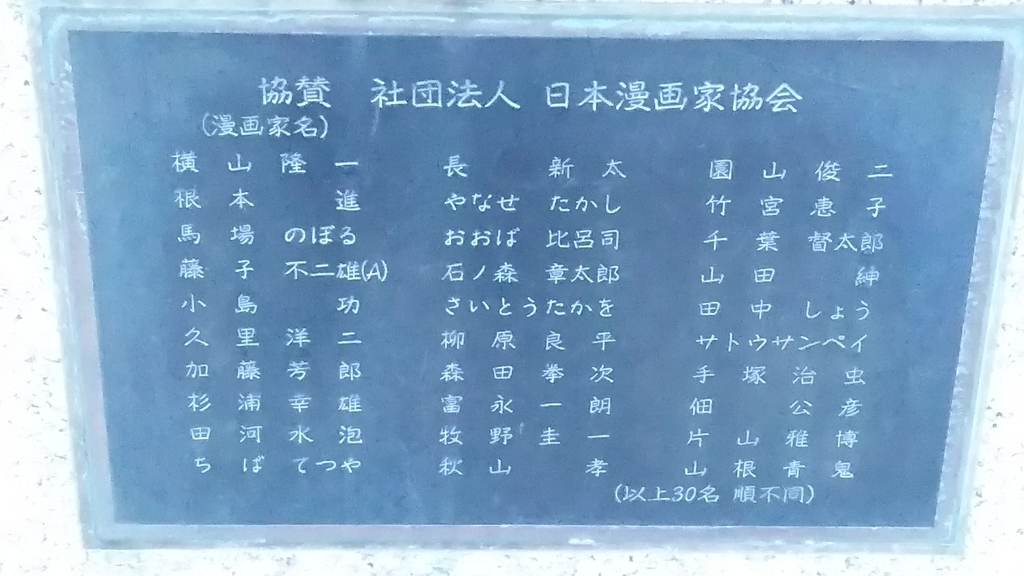 協賛 社団法人 日本漫画家協会
(漫画家名)
横山隆一 長新太 園山俊二
根本進 やなせたかし 竹宮恵子
馬場のぼる おおば比呂司 千葉督太郎
藤子不二雄(A) 石ノ森章太郎 山田紳
小島功 さいとうたかを 田中しょう
久里洋二 柳原良平 サトウサンペイ
加藤芳郎 森田拳次 手塚治虫
杉浦幸雄 富永一朗 佃公彦
田河水泡 牧野圭一 片山雅博
ちばてつや 秋山孝 山根青鬼
(以上30名 順不同)